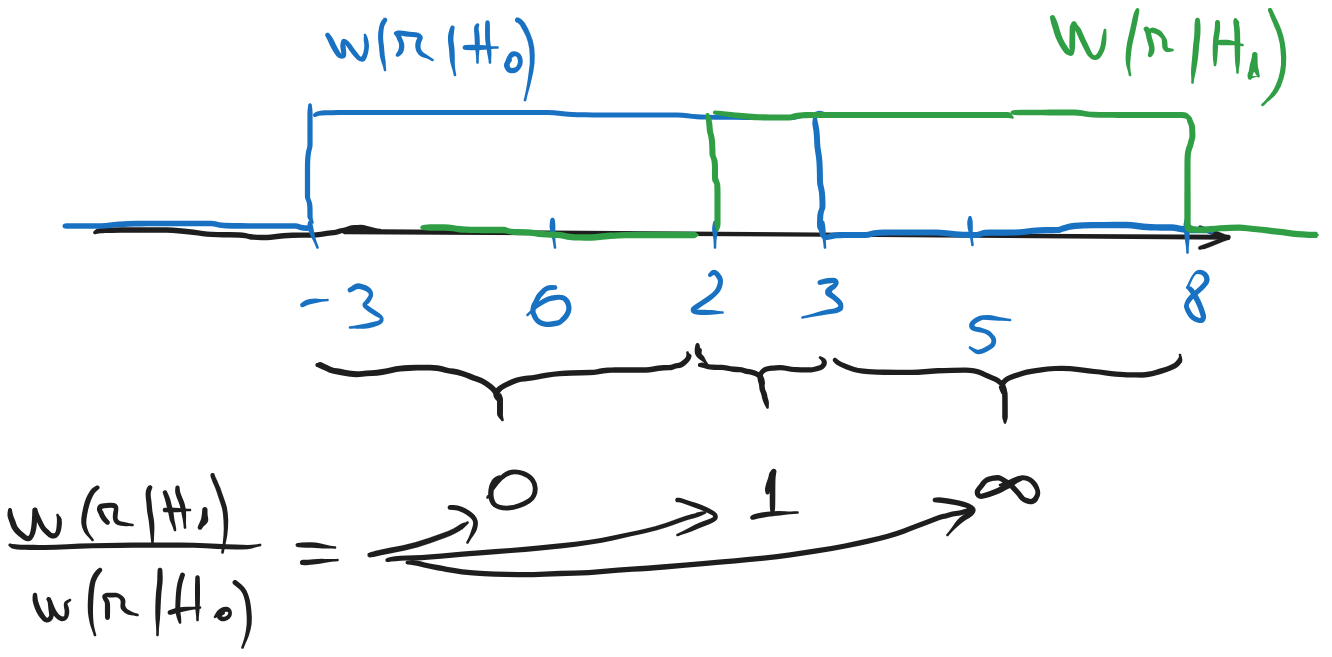 w(r|H₀) w(r|H₁)
-3 0 2 3 5 8
0 1 ∞
w(r|H₁)
=
w(r|H₀)